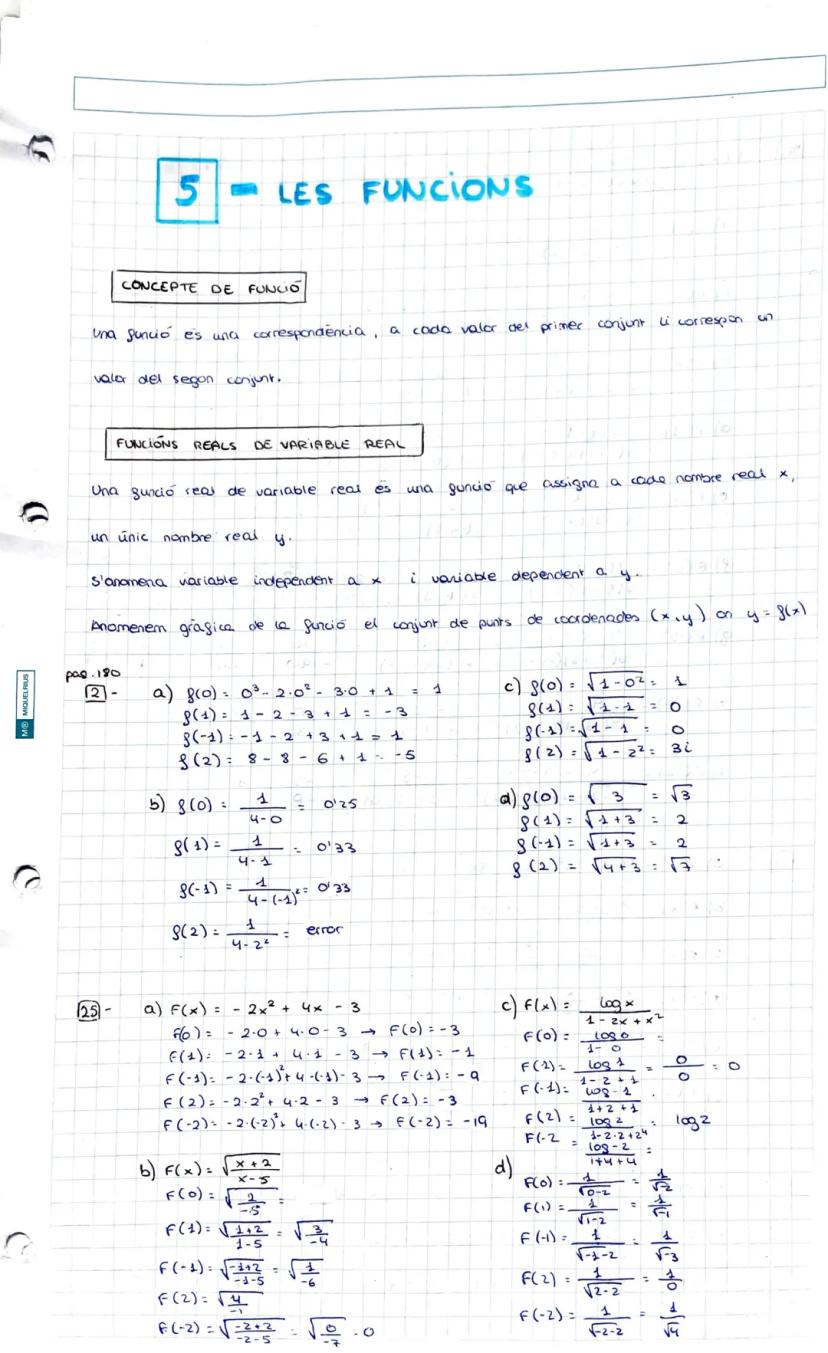 5 - LES FUNCIONS
CONCEPTE DE FUNCIÓ
Una funció és una correspondència, a cada valor del primer conjunt li correspon un
valor del segon conjunt.
FUNCIÓNS REALS DE VARIABLE REAL
Una funció real de variable real és una funció que assigna a cada nombre real x,
un únic nombre real y.
S'anomena variable independent a x i variable dependent a y.
Anomenem gràfica de la funció el conjunt de punts de coordenades (x,y) on y = f(x)
MIQUELRIUS
pag. 180
2 -
a) f(0) = 0³ - 2·0² - 3·0 + 1 = 1
f(1) = 1 - 2 - 3 + 1 = -3
f(-1) = -1 - 2 + 3 + 1 = 1
f(2) = 8 - 8 - 6 + 1 = -5
b) f(0) = 1/(4-0) = 0'25
f(1) = 1/(4-1) = 0'33
f(-1) = 1/(4-(-1)²) = 0'33
f(2) = 1/(4-2²) = error
c) f(0) = √(1-0²) = 1
f(1) = √(1-1) = 0
f(-1) = √(1-1) = 0
f(2) = √(1-2²) = 3i
d) f(0) = √3 = √3
f(1) = √(1+3) = 2
f(-1) = √(1+3) = 2
f(2) = √(4+3) = √7
25 -
a) F(x) = -2x² + 4x - 3
F(0) = -2·0 + 4·0 - 3 → F(0) = -3
F(1) = -2·1 + 4·1 - 3 → F(1) = -1
F(-1) = -2·(-1)² + 4·(-1) - 3 → F(-1) = -9
F(2) = -2·2² + 4·2 - 3 → F(2) = -3
F(-2) = -2·(-2)² + 4·(-2) - 3 → F(-2) = -19
b) F(x) = √((x+2)/(x-5))
F(0) = √(2/-5) =
F(1) = √((1+2)/(1-5)) = √(3/-4)
F(-1) = √((-1+2)/(-1-5)) = √(1/-6)
F(2) = √(4/-1)
F(-2) = √((-2+2)/(-2-5)) = √(0/-7) = 0
c) F(x) = log x/(1-2x+x²)
F(0) = log 0/(1-0) =
F(1) = log 1/(1-2+1) = 0/0 = 0
F(-1) = log -1/(1+2+1)
F(2) = log 2/(1-2·2+2⁴) = log 2
F(-2 = log -2/(1+4+4) =
d)
F(0) = 1/√(0-2) = 1/√-2
F(1) = 1/√(1-2) = 1/√-1
F(-1) = 1/√(-1-2) = 1/√-3
F(2) = 1/√(2-2) = 1/0
F(-2) = 1/√(-2-2) = 1/√4